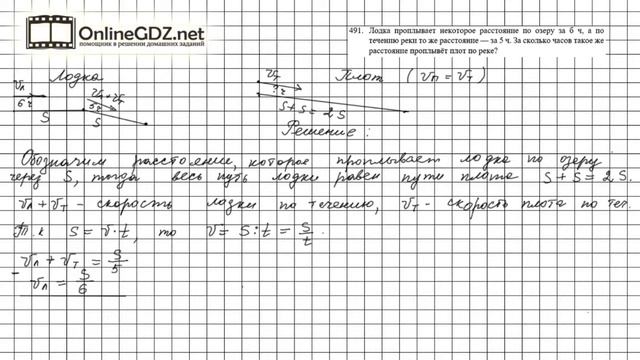 OnlineGDZ.net
ПОМОЩНИК В РЕШЕНИИ ДОМАШНИХ ЗАДАНИЙ
491. Лодка проплывает некоторое расстояние по озеру за 6 ч, а по
течению реки то же расстояние — за 5 ч. За сколько часов такое же
расстояние проплывёт плот по реке?
Лодка
Плот (vп = vт)
vл
6ч
S
vл + vт
5ч
S
vт
? ч
S+S = 2S
Решение:
Обозначим расстояние, которое проплывает лодка по озеру
через S, тогда весь путь лодки равен пути плота S+S=2S.
vл+vт - скорость лодки по течению, vт - скорость плота по теч.
Т.к S=v·t, то v=S:t=S/t.
vл+vт=S/5
- vл=S/6